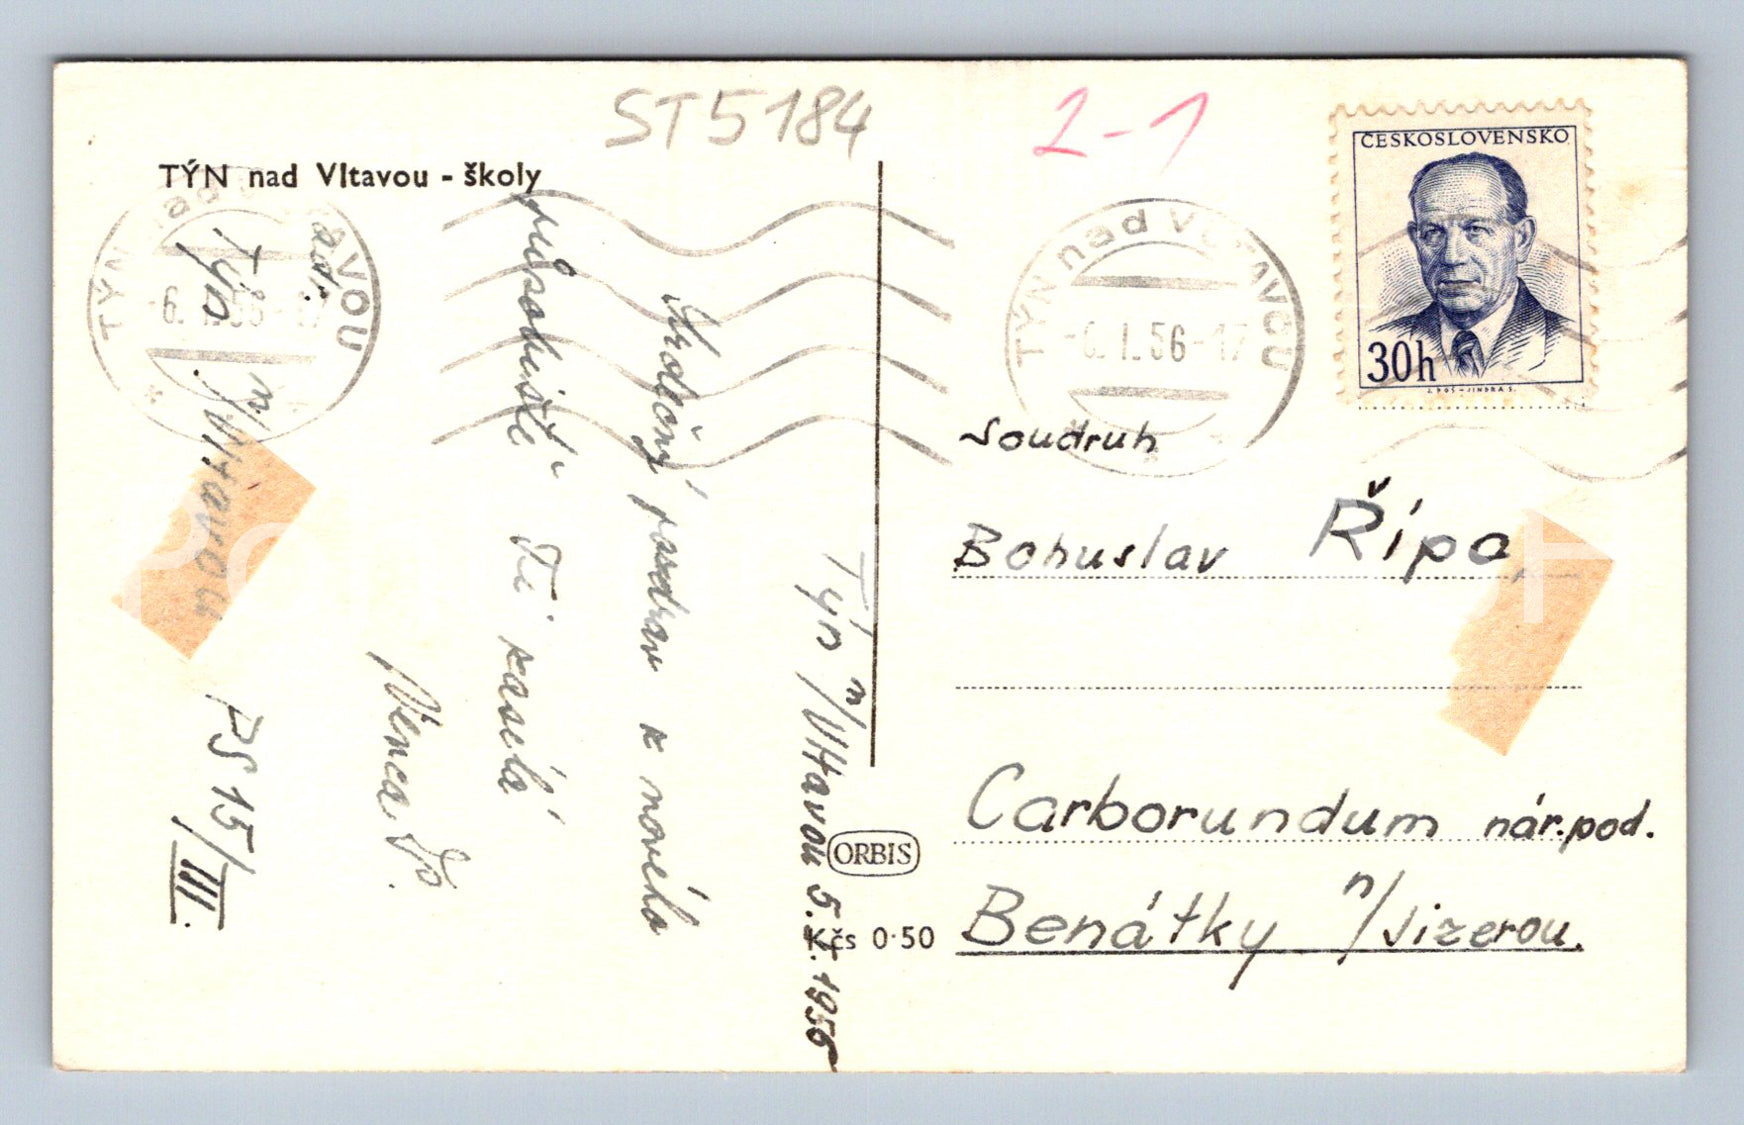 ST5184
2-1
TÝN nad Vltavou - školy
ČESKOSLOVENSKO
30h
TÝN nad VLTAVOU
-6. I. 56-17
TÝN nad VLTAVOU
-6. I. 56-17
Týn n/Vltavou 5.I.1956
Srdečný pozdrav k novému
působišti Ti zasílá
Venca
adr.
Týn n/Vltavou
PS 15/III.
Soudruh
Bohuslav Řípa,
Carborundum nár.pod.
Benátky n/Jizerou.
ORBIS
Kčs 0·50